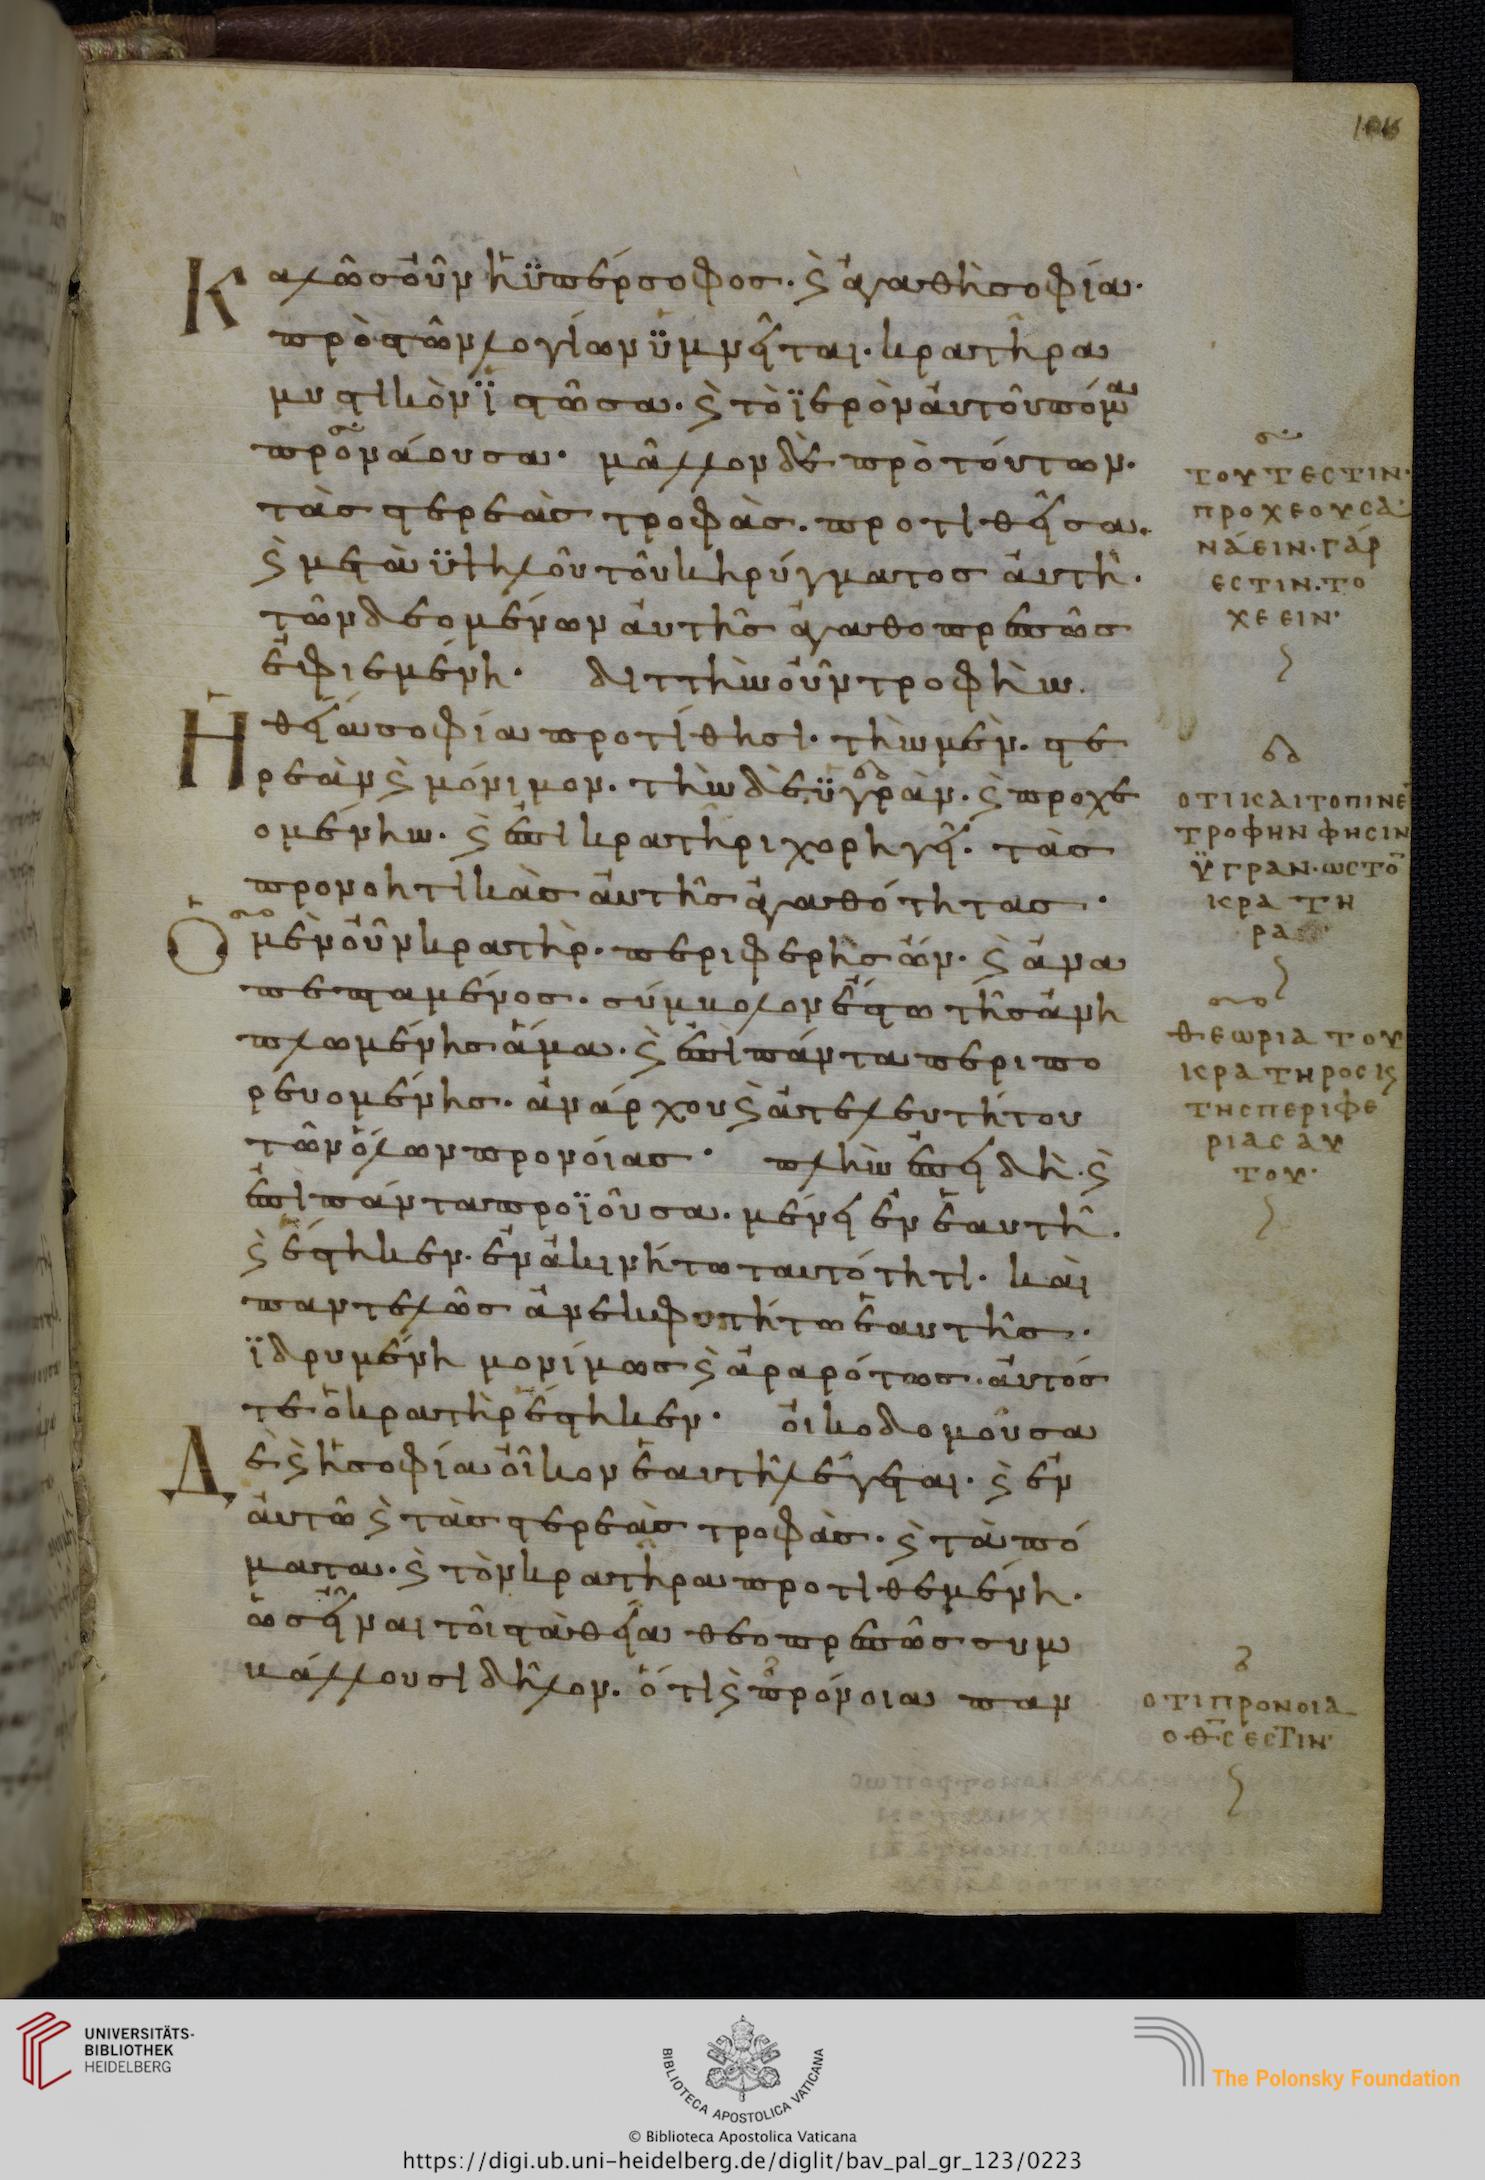 106
Καλῶς οὖν ἡ ὑπέρσοφος. ϗ ἀγαθὴ σοφία.
πρὸς τῶν λογίων ὑμνεῖται. κρατῆρα
μυστικὸν ἱστῶσα. ϗ τὸ ἱερὸν αὐτοῦ πόμα
προνάουσα. μᾶλλον δὲ πρὸ τούτων.
τὰς στερεὰς τροφὰς. προτιθεῖσα.
ϗ μετὰ ὑψηλοῦ τοῦ κηρύγματος αὐτὴ.
τῶν δεομένων αὐτῆς ἀγαθοπρεπῶς
ἐφιεμένη. διττὴν οὖν τροφὴν.
Ἡ θεία σοφία προτίθησι. τὴν μὲν. στε
ρεὰν ϗ μόνιμον. τὴν δὲ ὑγρὰν. ϗ προχε
ομένην. ϗ ἐπι κρατῆρι χορηγεῖ. τὰς
προνοητικὰς αὐτῆς ἀγαθότητας.
Ὁ μὲν οὖν κρατὴρ. περιφερὴς ὢν. ϗ ἀνα
πεπταμένος. σύμβολον ἔστω τῆς ἀνη
πλωμένης ἅμα. ϗ ἐπὶ πάντα περιπο
ρευομένης. ἀνάρχου ϗ ἀτελευτήτου
τῶν ὅλων προνοίας. πλὴν ἐπειδὴ. ϗ
ἐπὶ πάντα προϊοῦσα. μένει ἐν ἑαυτῇ.
ϗ ἕστηκεν. ἐν ἀκινήτω ταυτότητι. καὶ
παντελῶς ἀνεκφοιτήτω ἑαυτῆς.
ἱδρυμένη μονίμως ϗ ἀραρότως. αὐτός
τε ὁ κρατὴρ ἕστηκεν. οἰκοδομοῦσα
Δὲ ϗ ἡ σοφία οἶκον ἑαυτῇ λέγεται. ϗ ἐν
αὐτῶ ϗ τὰς στερεὰς τροφὰς. ϗ τὰ πό
ματα. ϗ τὸν κρατῆρα προτιθεμένη.
ὡς εἶναι τοῖς τὰ θεῖα θεοπρεπῶς συμ
βάλλουσι δῆλον. ὅτι ϗ πρόνοια παν
ΤΟΥΤΕCΤΙΝ·
ΠΡΟΧΕΟΥCΑ·
ΝΑΕΙΝ·ΓΑΡ
ΕCΤΙΝ·ΤΟ
ΧΕΕΙΝ·
ΟΤΙ ΚΑΙ ΤΟ ΠΙΝΕΙ
ΤΡΟΦΗΝ ΦΗCΙΝ
ΫΓΡΑΝ·ωC ΤΟ
ΚΡΑΤΗ
ΡΑ
ΘΕωΡΙΑ ΤΟΥ
ΚΡΑΤΗΡΟC Κ
ΤΗC ΠΕΡΙΦΕ
ΡΙΑC ΑΥ
ΤΟΥ·
ΟΤΙ ΠΡΟΝΟΙΑ
Ο ΘC ΕCΤΙΝ·
UNIVERSITÄTS-
BIBLIOTHEK
HEIDELBERG
BIBLIOTECA APOSTOLICA VATICANA
The Polonsky Foundation
© Biblioteca Apostolica Vaticana
https://digi.ub.uni-heidelberg.de/diglit/bav_pal_gr_123/0223